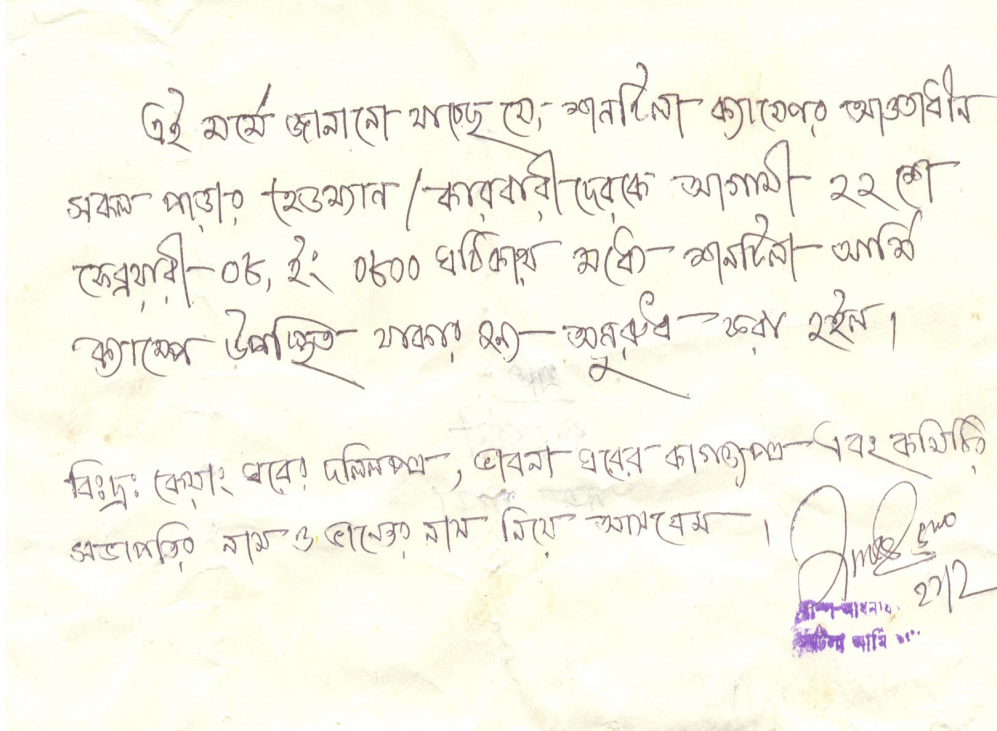 এই মর্মে জানানো যাচ্ছে যে, শানটিলা ক্যাম্পের আওতাধীন
সকল পাড়ার হেডম্যান / কারবারীদেরকে আগামী ২২ শে
ফেব্রুয়ারী - ০৮, ইং ০৮০০ ঘটিকার মধ্যে শানটিলা আর্মি
ক্যাম্পে উপস্থিত থাকার জন্য অনুরুধ করা হইল।
বিঃদ্রঃ কেয়াং ঘরের দলিলপত্র, ভাবনা ঘরের কাগজপত্র এবং কমিটির
সভাপতির নাম ও ভান্তের নাম নিয়ে আসবেন।
২১/২
আর্মি